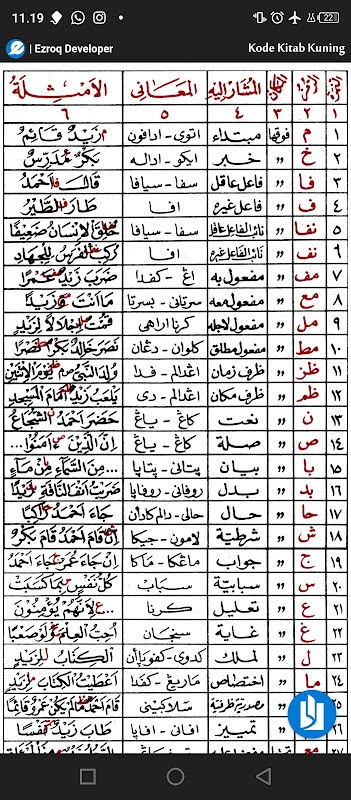 11.19 22
| Ezroq Developer Kode Kitab Kuning
المُشَارُ اِلَيْه المَعَانِى الأَمْثِلَة
١ ٢ ٣ ٤ ٥ ٦
١ م فوقها مبتداء اتوى - ادافون زَيْدٌ قَائِمٌ
٢ خ " خبر ايكو - اداله بَكْرٌ مُدَرِّسٌ
٣ فا " فاعل عاقل سفا - سيافا قَالَ اَحْمَدُ
٤ ف " فاعل غيره افا طَارَ الطَّيْرُ
٥ نفا " نائب الفاعل عاقل سفا - سيافا خُلِقَ الْاِنْسَانُ ضَعِيْفًا
٦ نف " نائب الفاعل غيره افا رُكِبَ الْفَرَسُ لِلْجِهَادِ
٧ مف " مفعول به اڠ - كفدا ضَرَبَ زَيْدٌ عَمْرًا
٨ مع " مفعول معه سرتانى - بسرتا مَا اَنْتَ وَزَيْدًا
٩ مل " مفعول لاجله كرنا اراهى قُمْتُ اِجْلَالًا لِزَيْدٍ
١٠ مط " مفعول مطلق كلوان - دڠان نَصَرَ خَالِدٌ بَكْرًا نَصْرًا
١١ ظز " ظرف زمان اڠدالم - فدا وُلِدَ النَّبِيُّ يَوْمَ الْاِثْنَيْنِ
١٢ ظم " ظرف مكان اڠدالم - دى يَلْعَبُ زَيْدٌ اَمَامَ الْمَسْجِدِ
١٣ ن " نعت كاڠ - ياڠ حَضَرَ اَحْمَدُ الشُّجَاعُ
١٤ ص " صلة كاڠ - ياڠ اِنَّ الَّذِيْنَ اٰمَنُوْا...
١٥ با " بيان بيتانى - پتاپا ...مِنَ السَّمَاءِ مِنْ مَاءٍ
١٦ بد " بدل روفانى - روفاپا
١٧ حا " حال حالى - دالم كادأن جَاءَ اَحْمَدُ رَاكِبًا
١٨ ش " شرطية لامون - جيكا اِنْ قَامَ اَحْمَدُ قَامَ بَكْرٌ
١٩ ج " جواب ماڠكا - ماكا اِنْ جَاءَ عُمَرُ جَاءَ اَحْمَدُ
٢٠ س " سبابية سباب كُلُّ نَفْسٍ بِمَا كَسَبَتْ
٢١ ع " تعليل كرنا ...لِاَنَّهُمْ يُؤْمِنُوْنَ
٢٢ غ " غاية سنجان اُحِبُّ الْعِلْمَ وَلَوْ صَعْبًا
٢٣ ل " لملك كدوى - كفوپاأن الْكِتَابُ لِزَيْدٍ
٢٤ ما " اختصاص ماريڠ - كفدا اَعْطَيْتُ الْكِتَابَ لِزَيْدٍ
٢٥ " مصدرية ظرفية سلاكينى قَامَ اَحْمَدُ مَالَمْ يَكُنْ عَمْرٌو قَائِمًا
٢٦ تمييز افانى - افاپا طَابَ زَيْدٌ نَفْسًا
٢٧ مع